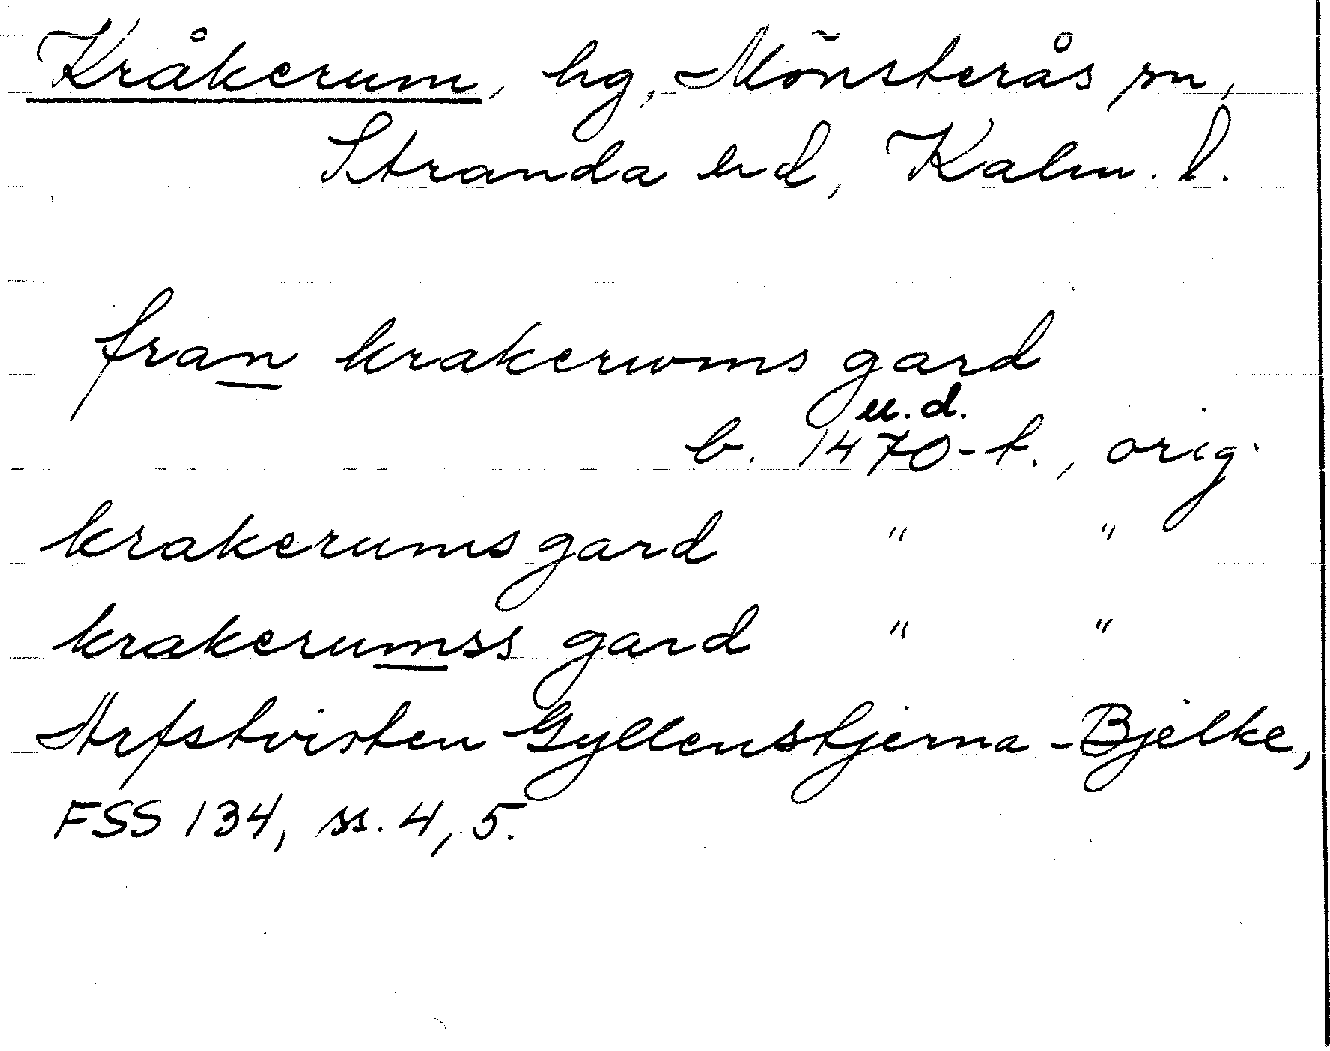 Kråkerum, hg, Mönsterås sn,
Stranda hd, Kalm. l.
fran krakerwms gard
u.d.
b. 1470-t., orig.
krakerums gard " "
krakerumss gard " "
Arfstvisten Gyllenstjerna - Bjelke,
FSS 134, ss. 4, 5.